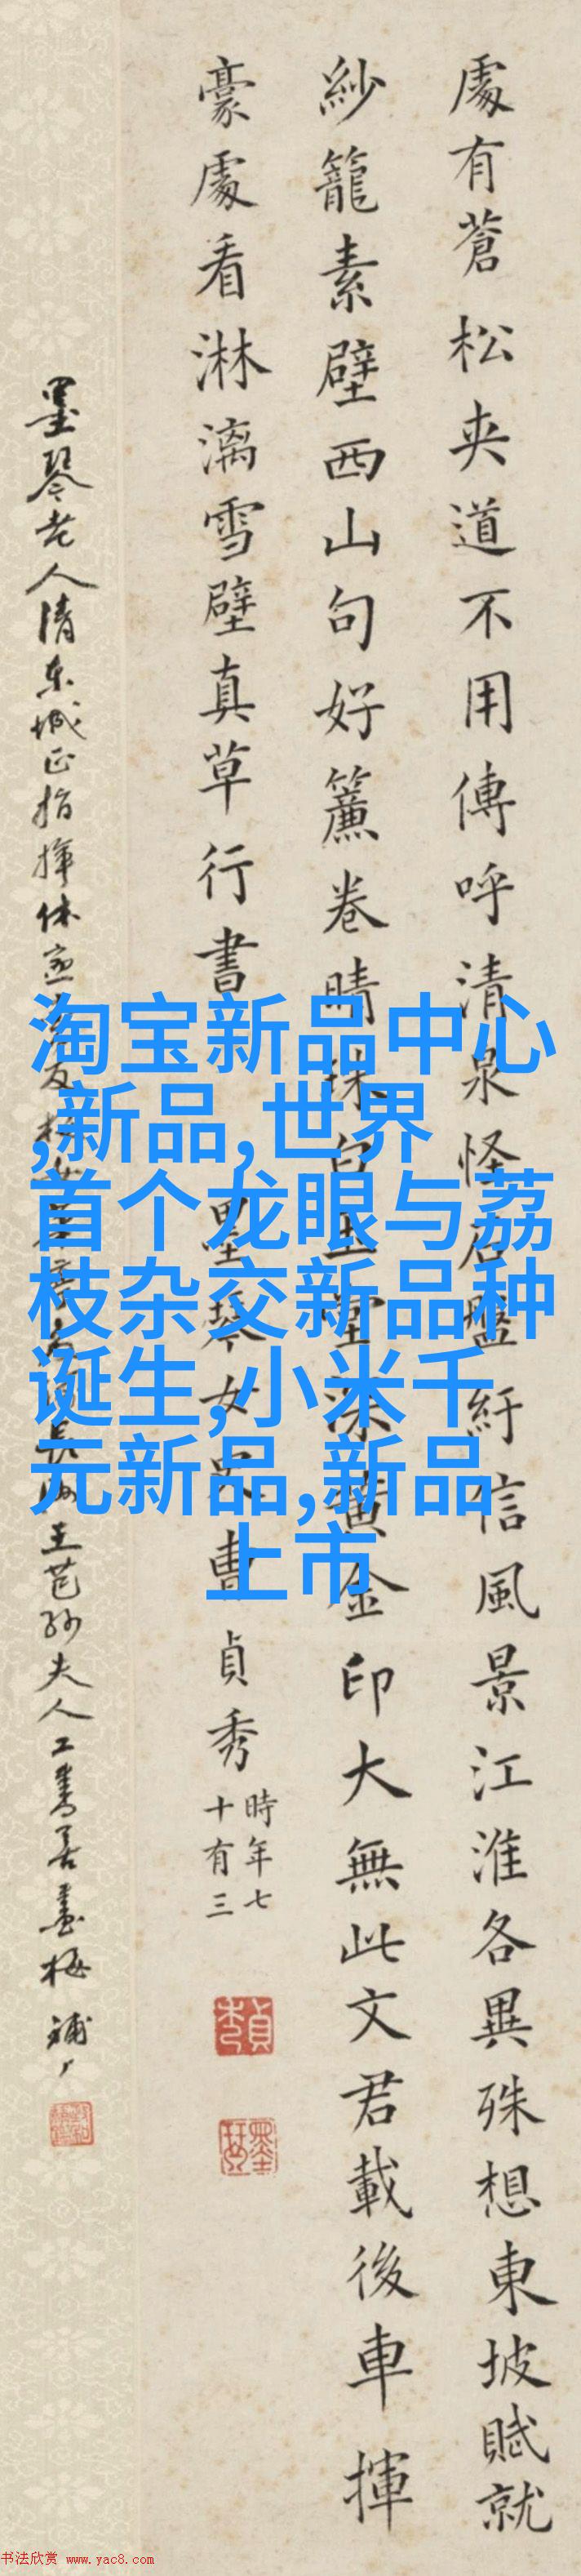 處有蒼松夾道不用傳呼清泉怪石盤紆信風景江淮各異殊想東坡賦就
紗籠素壁西山句好簾卷晴珠白玉堂深黃金印大無此文君載後車揮
豪處看淋漓雪壁真草行書
墨琴女史曹貞秀
時年七
十有三
貞秀
墨琴
墨琴老人清東城正指揮休
長洲王芑孫夫人工書善畫梅
淘宝新品中心
,新品,世界
首个龙眼与荔
枝杂交新品种
诞生,小米千
元新品,新品
上市
书法欣赏 www.yac8.com